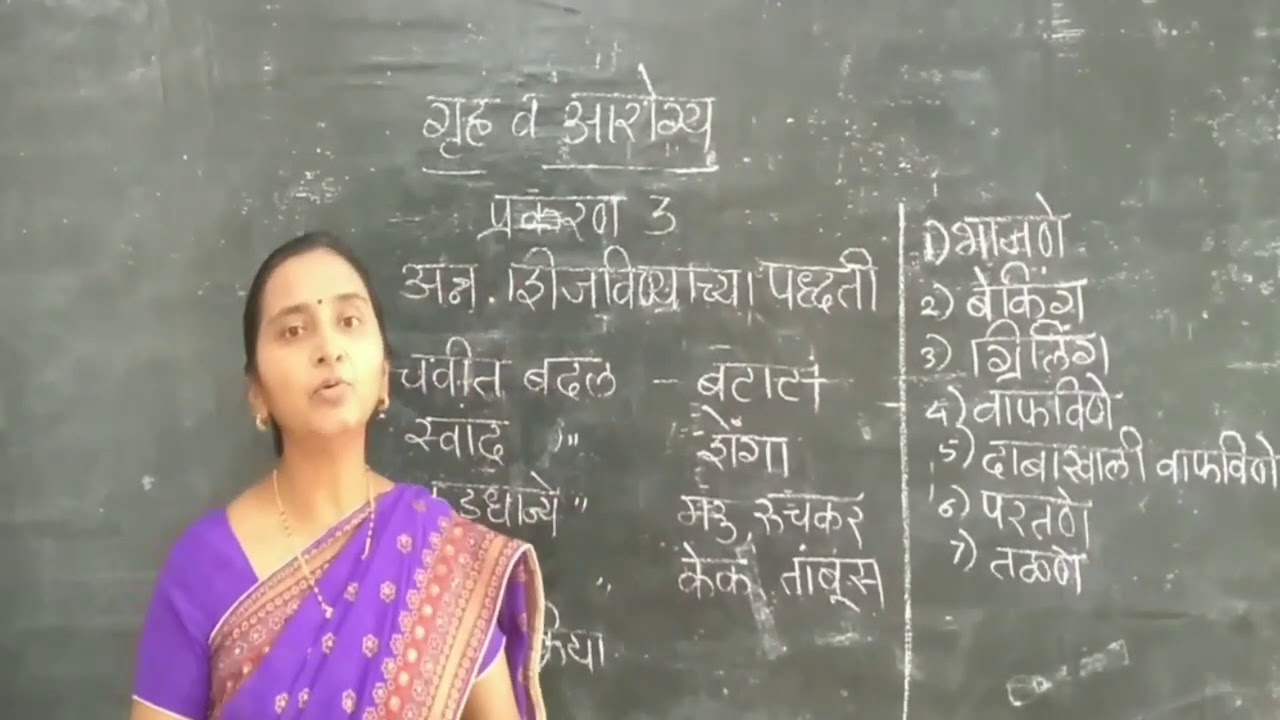 गृह व आरोग्य
प्रकरण 3
अन्न शिजविण्याच्या पद्धती
चवीत बदल - बटाटा
स्वाद " शेंगा
कडधान्ये " मऊ, रुचकर
" केक तांबूस
क्रिया
1) भाजणे
2) बेकिंग
3) ग्रिलिंग
4) वाफविणे
5) दाबाखाली वाफविणे
६) परतणे
7) तळणे